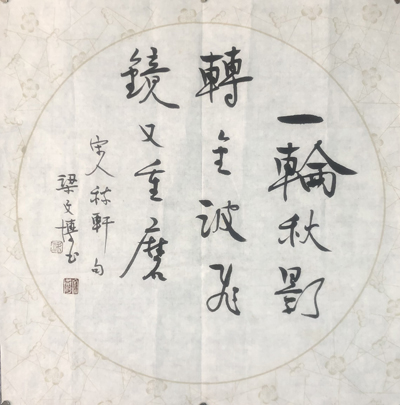 一輪秋影
轉金波飛
鏡又重磨
宋人稼軒句
梁文博书